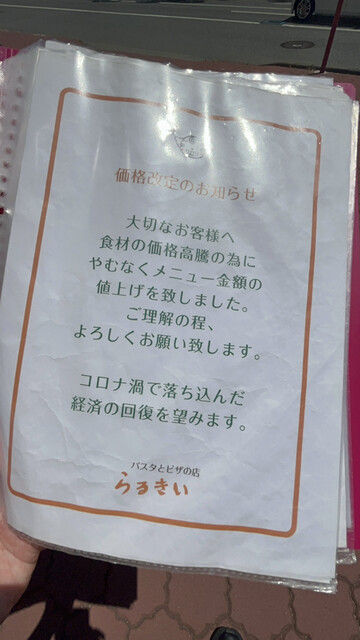 価格改定のお知らせ
大切なお客様へ
食材の価格高騰の為に
やむなくメニュー金額の
値上げを致しました。
ご理解の程、
よろしくお願い致します。
コロナ渦で落ち込んだ
経済の回復を望みます。
パスタとピザの店
らるきい